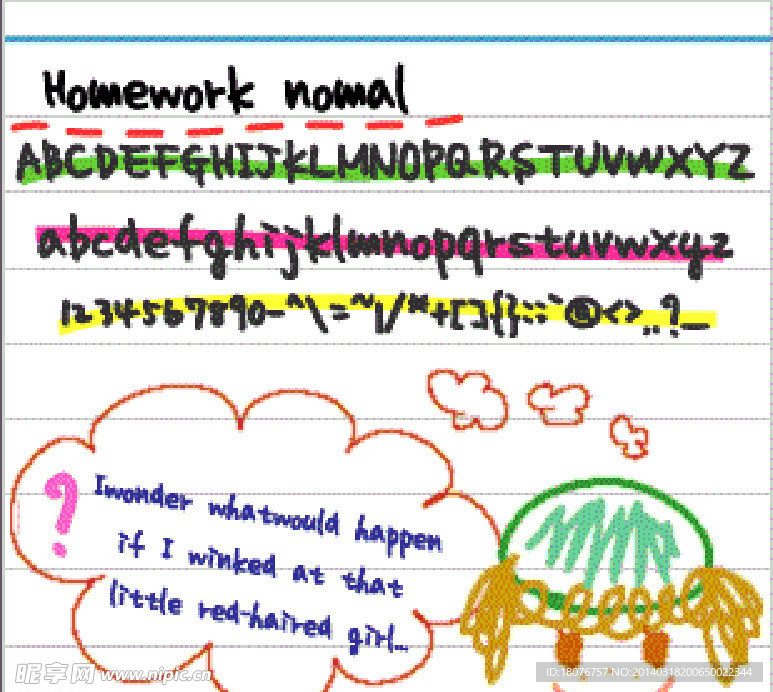 Homework nomal
ABCDEFGHIJKLMNOPQRSTUVWXYZ
abcdefghijklmnopqrstuvwxyz
1234567890-^\=~|/*+[]{}:;`@<>,.?_
?
I wonder whatwould happen
if I winked at that
little red-haired girl...
昵享网 www.nipic.cn
ID:18076757 NO:20140318200650022344